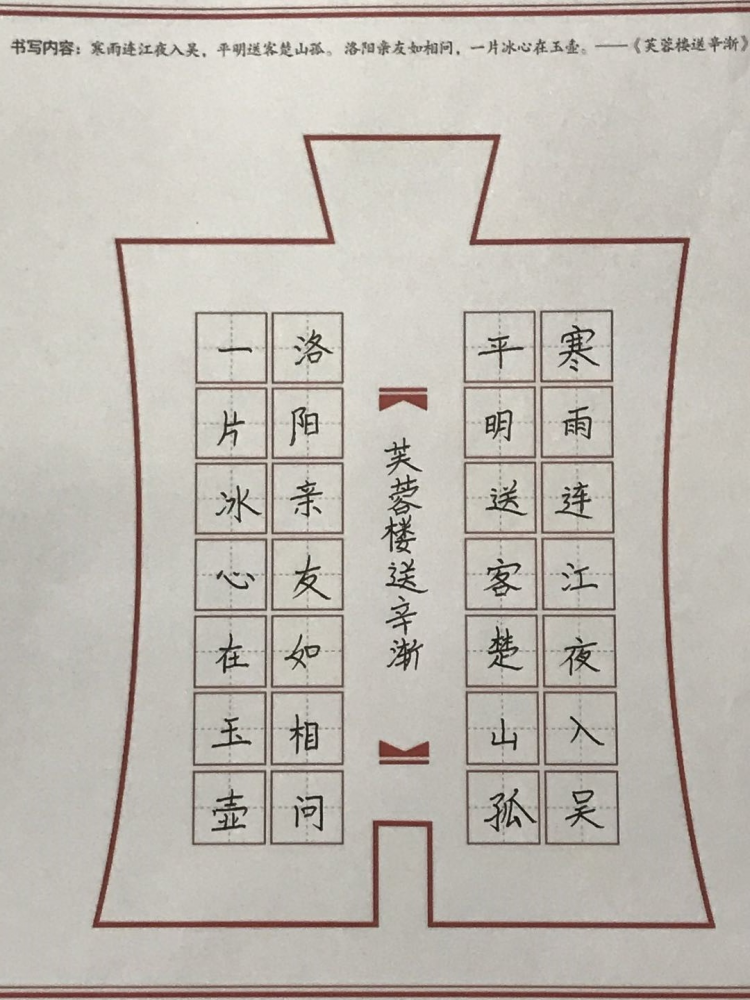 书写内容：寒雨连江夜入吴，平明送客楚山孤。洛阳亲友如相问，一片冰心在玉壶。——《芙蓉楼送辛渐》
寒雨连江夜入吴
平明送客楚山孤
芙蓉楼送辛渐
洛阳亲友如相问
一片冰心在玉壶